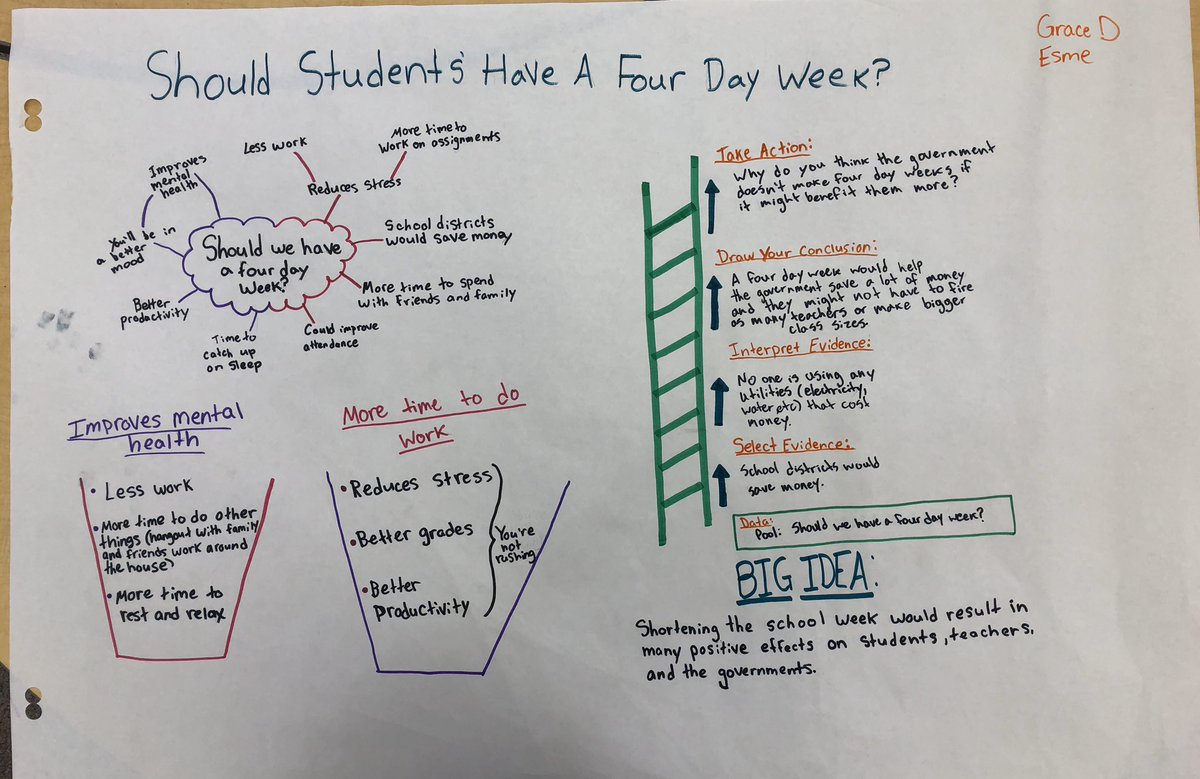 Grace D
Esme
Should Students' Have A Four Day Week?
Less work
More time to
work on assignments
Improves
mental
health
Reduces stress
You'll be in
a better
mood
Should we have
a four day
week?
School districts
would save money
More time to spend
with friends and family
Better
productivity
Time to
catch up
on sleep
Could improve
attendance
Improves mental
health
• Less work
• More time to do other
things (hangout with family
and friends work around
the house)
• More time to
rest and relax
More time to do
work
• Reduces stress
• Better grades
• Better
productivity
You're
not
rushing
Take Action:
Why do you think the government
doesn't make four day weeks if
it might benefit them more?
Draw Your Conclusion:
A four day week would help
the government save a lot of money
and they might not have to fire
as many teachers or make bigger
class sizes.
Interpret Evidence:
No one is using any
utilities (electricity,
water etc) that cost
money.
Select Evidence:
School districts would
save money.
Data:
Pool: Should we have a four day week?
BIG IDEA:
Shortening the school week would result in
many positive effects on students, teachers,
and the governments.